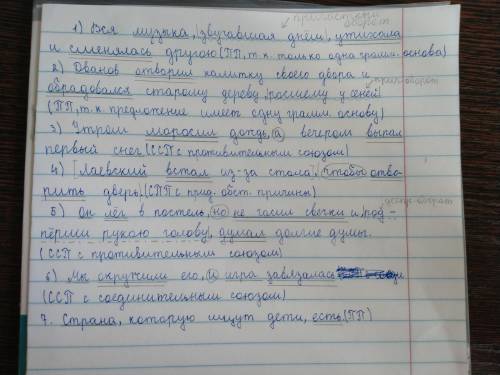 причастный
оборот
1) Вся музыка, |звучавшая днём|, утихала
и сменялась другою (ПП, т.к. только одна грамм. основа)
2) Ованов отворил калитку своего двора и
прич. оборот
обрадовался старому дереву, |росшему у сеней|
(ПП, т.к. предложение имеет одну грамм. основу)
3) Утром моросил дождь, а вечером выпал
первый снег. (ССП с противительным союзом)
4) [Лаевский встал из-за стола], (чтобы отво-
рить дверь). (СПП с прид. обст. причины)
дееприч. оборот
5) Он лёг в постель, но не гасил свечки и, |под-
пёрши рукою голову|, думал долгие думы.
(ССП с противительным союзом)
6) Мы окружили его, и игра завязалась
(ССП с соединительным союзом)
7. Страна, которую ищут дети, есть. (ПП)